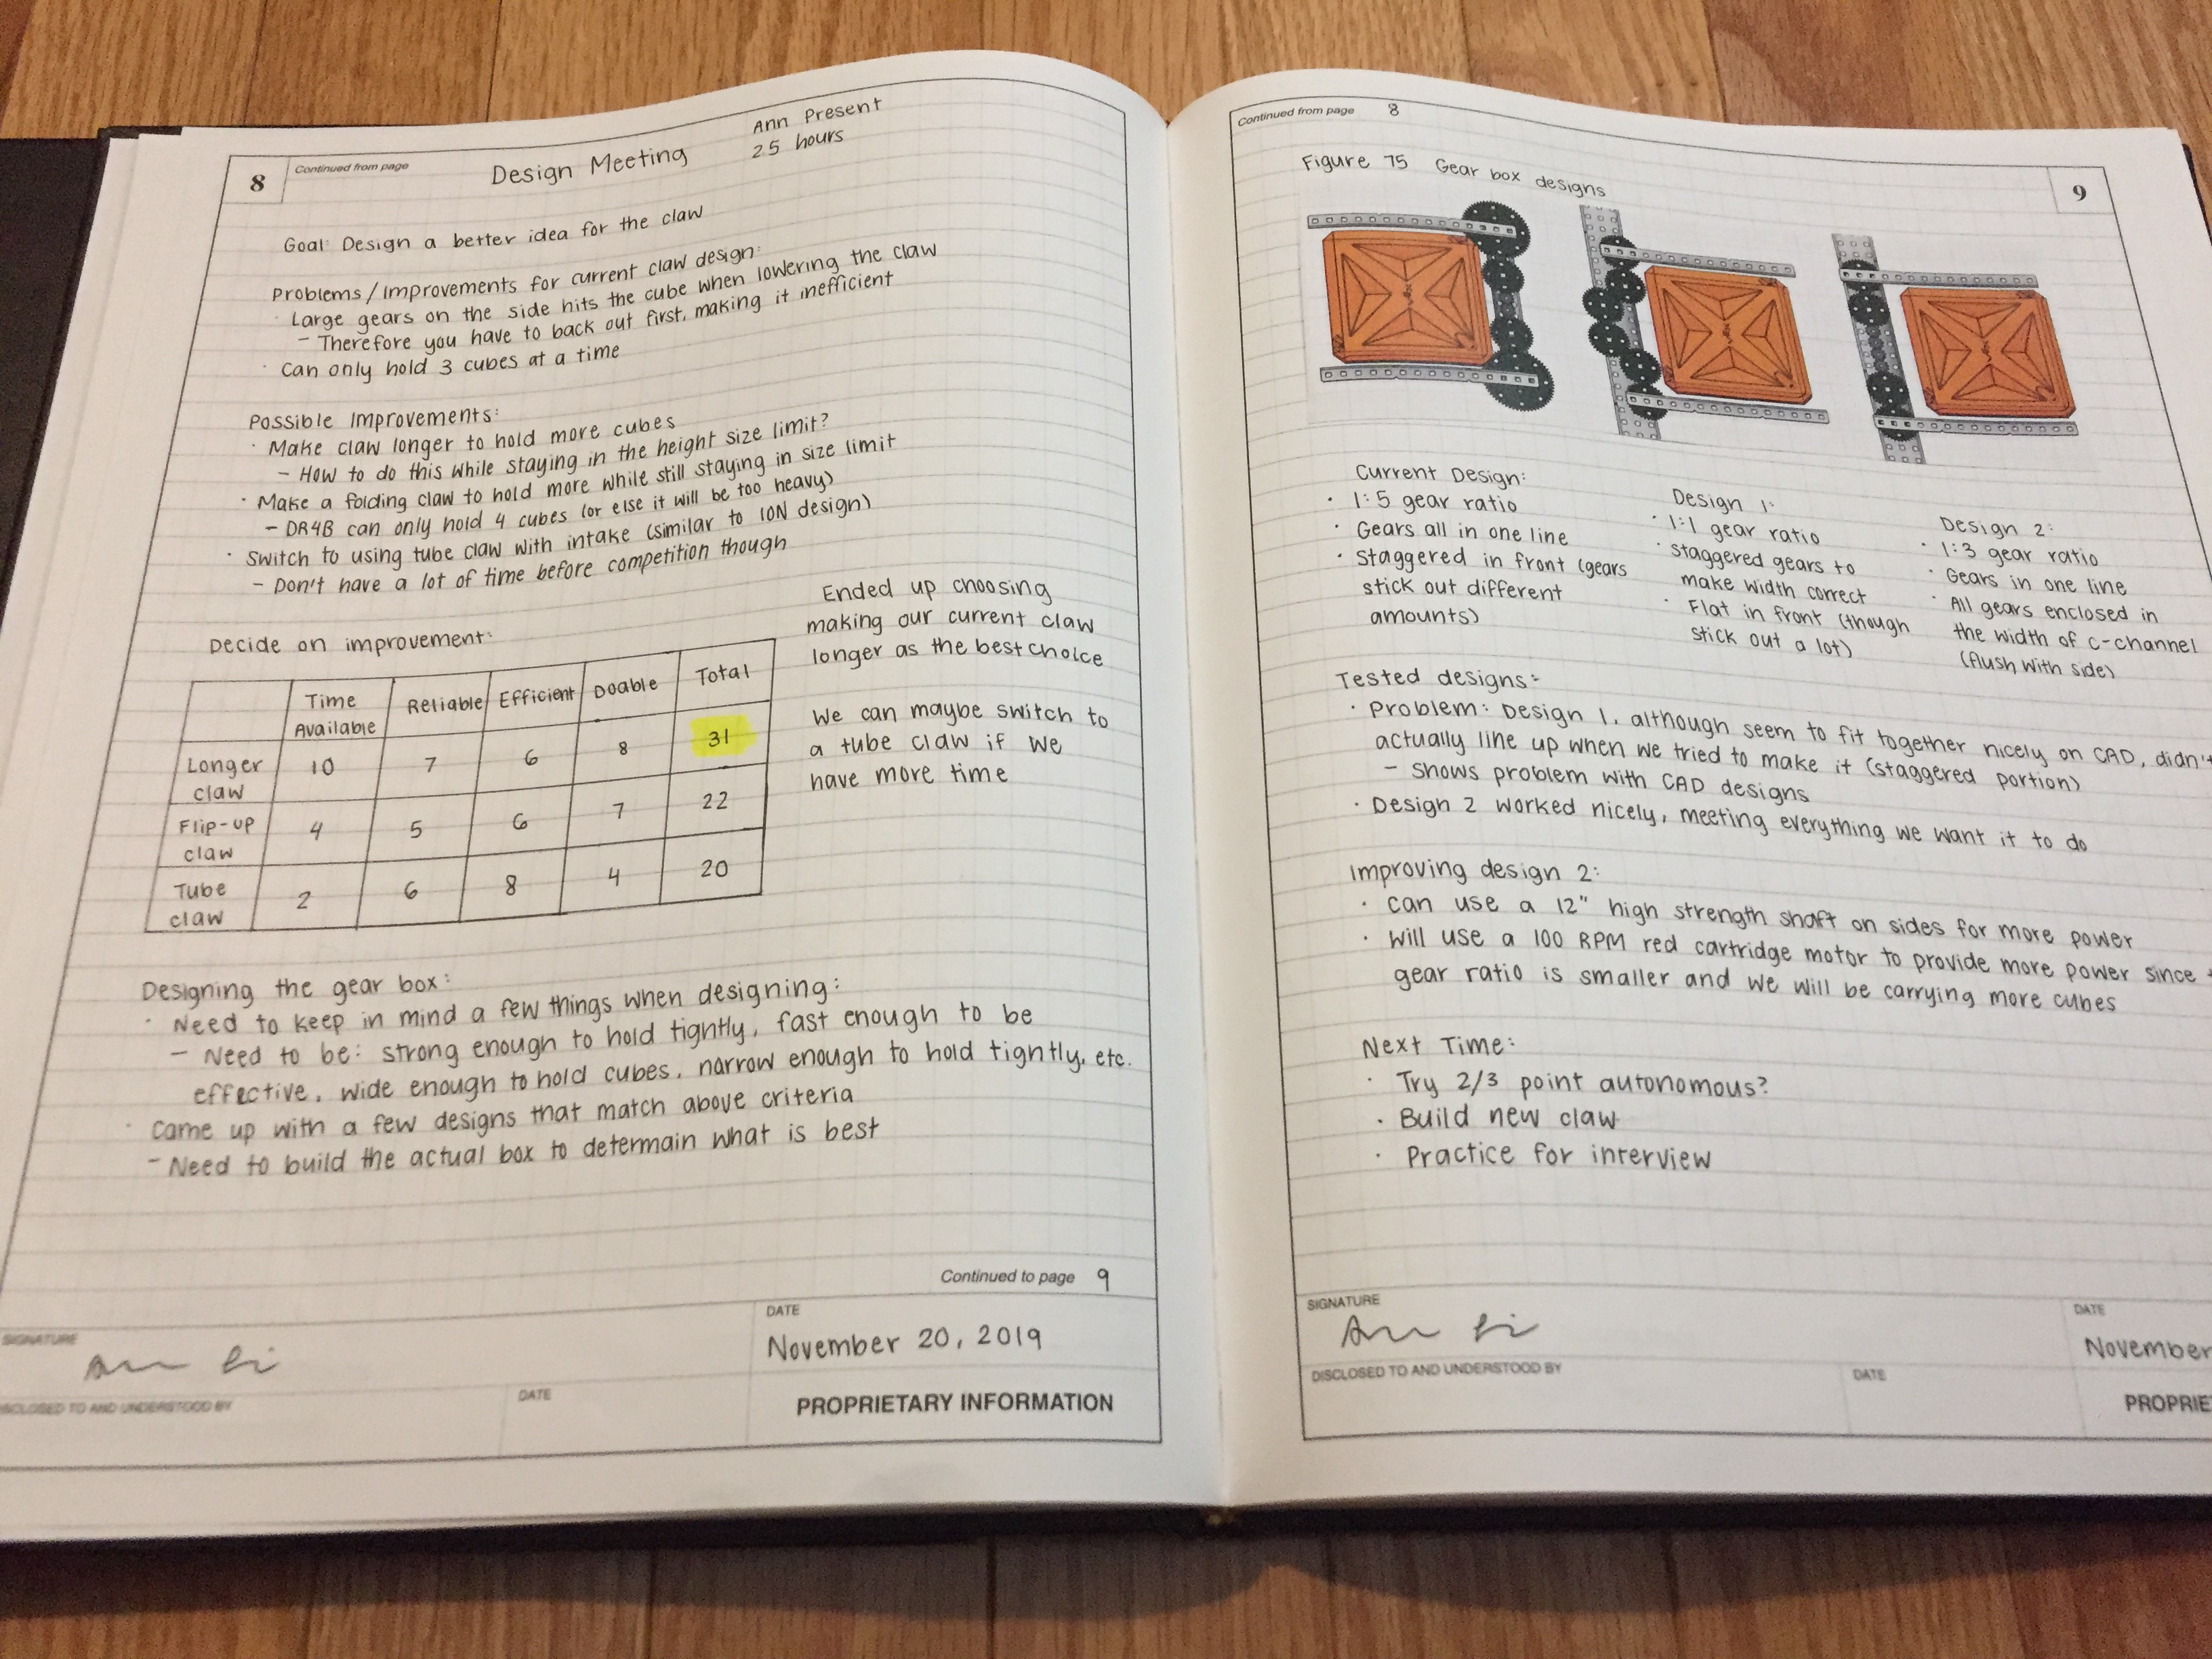 8
Continued from page
Design Meeting
Ann Present
2.5 hours
Goal: Design a better idea for the claw
Problems/improvements for current claw design:
· Large gears on the side hits the cube when lowering the claw
- Therefore you have to back out first, making it inefficient
· Can only hold 3 cubes at a time
Possible improvements:
· Make claw longer to hold more cubes
- How to do this while staying in the height size limit?
· Make a folding claw to hold more while still staying in size limit
- DR4B can only hold 4 cubes (or else it will be too heavy)
· Switch to using tube claw with intake (similar to ION design)
- Don't have a lot of time before competition though
Decide on improvement:
Time Available Reliable Efficient Doable Total
Longer claw 10 7 6 8 31
Flip-up claw 4 5 6 7 22
Tube claw 2 6 8 4 20
Ended up choosing
making our current claw
longer as the best choice
We can maybe switch to
a tube claw if we
have more time
Designing the gear box:
· Need to keep in mind a few things when designing:
- Need to be: strong enough to hold tightly, fast enough to be
effective, wide enough to hold cubes, narrow enough to hold tightly, etc.
· Came up with a few designs that match above criteria
- Need to build the actual box to determain what is best
Continued to page 9
SIGNATURE
DATE
November 20, 2019
DISCLOSED TO AND UNDERSTOOD BY
DATE
PROPRIETARY INFORMATION
Continued from page 8
9
Figure 75 Gear box designs
Current Design:
· 1:5 gear ratio
· Gears all in one line
· Staggered in front (gears
stick out different
amounts)
Design 1:
· 1:1 gear ratio
· Staggered gears to
make width correct
· Flat in front (though
stick out a lot)
Design 2:
· 1:3 gear ratio
· Gears in one line
· All gears enclosed in
the width of c-channel
(flush with side)
Tested designs:
· Problem: Design 1, although seem to fit together nicely on CAD, didn't
actually line up when we tried to make it (staggered portion)
- Shows problem with CAD designs
· Design 2 worked nicely, meeting everything we want it to do
Improving design 2:
· Can use a 12" high strength shaft on sides for more power
· Will use a 100 RPM red cartridge motor to provide more power since
gear ratio is smaller and we will be carrying more cubes
Next Time:
· Try 2/3 point autonomous?
· Build new claw
· Practice for interview
SIGNATURE
DATE
November
DISCLOSED TO AND UNDERSTOOD BY
DATE
PROPRIE